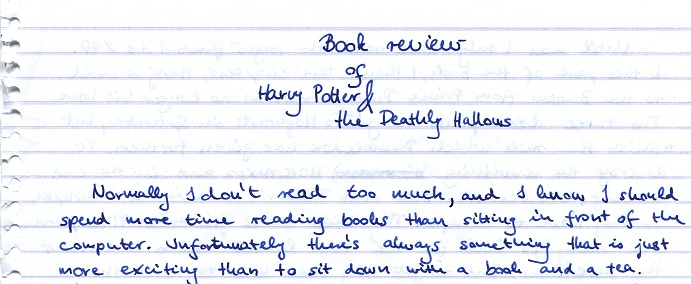 Book review
of
Harry Potter &
the Deathly Hallows
Normally I don't read too much, and I know I should
spend more time reading books than sitting in front of the
computer. Unfortunately there's always something that is just
more exciting than to sit down with a book and a tea.